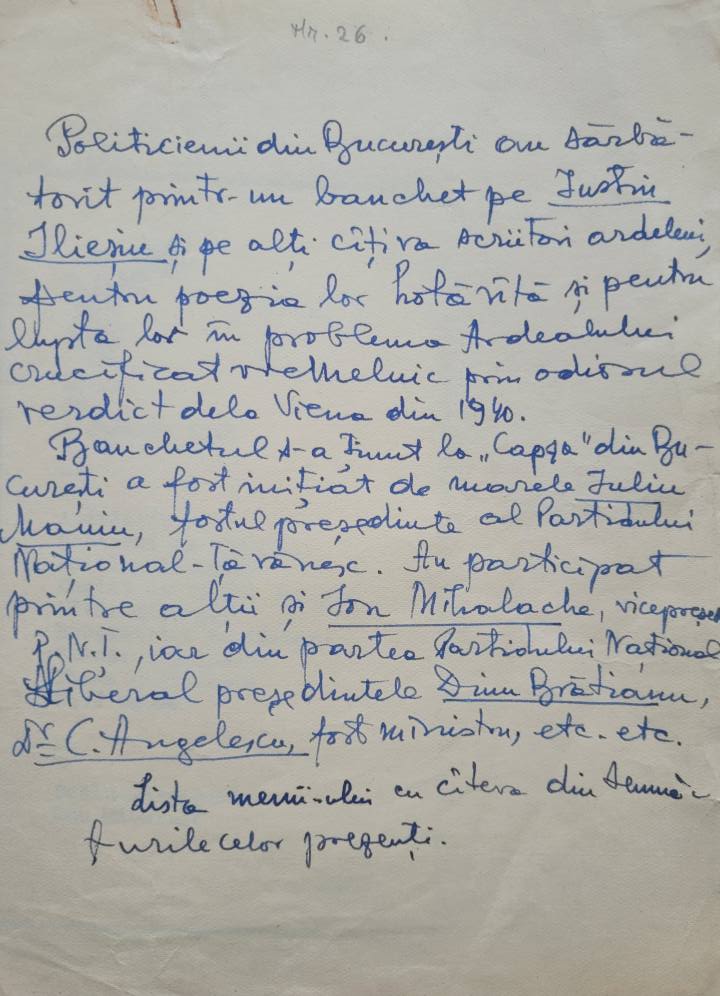 Nr. 26.
Politicienii din București au sărbă-
torit printr-un banchet pe Iustin
Ilieșiu și pe alți cîțiva scriitori ardeleni,
pentru poezia lor hotărîtă și pentru
lupta lor în problema Ardealului
crucificat vremelnic prin odiosul
verdict dela Viena din 1940.
Banchetul s-a ținut la „Capșa" din Bu-
curești a fost inițiat de marele Iuliu
Maniu, fostul președinte al Partidului
Național-Țărănesc. Au participat
printre alții și Ion Mihalache, vicepreșed
P.N.Ț., iar din partea Partidului Național
Liberal președintele Dinu Brătianu,
Dr. C. Angelescu, fost ministru, etc. etc.
Lista meniu-ului cu cîteva din semnă-
turile celor prezenți.